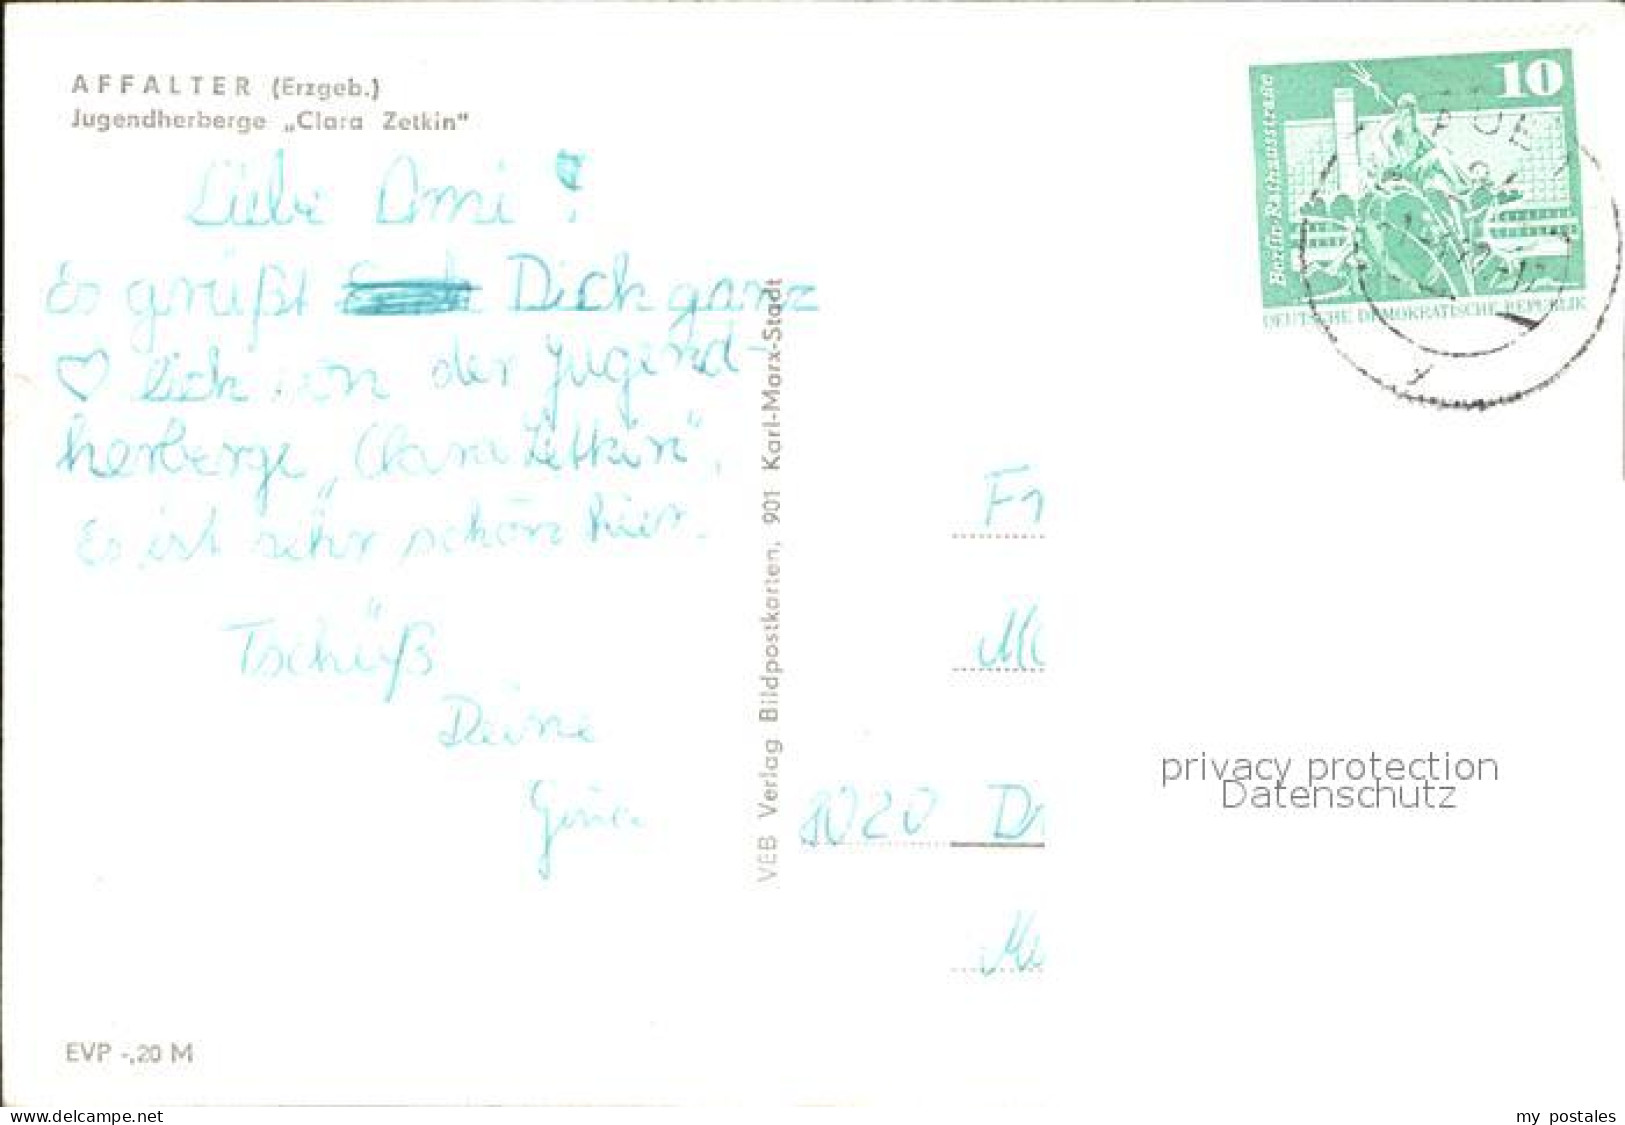 AFFALTER (Erzgeb.)
Jugendherberge „Clara Zetkin"
Liebe Omi!
Es grüßt Dich ganz
♡ lich von der Jugend-
herberge „Clara Zetkin".
Es ist sehr schön hier.
Tschüß
Deine
VEB Verlag Bildpostkarten, 901 Karl-Marx-Stadt
EVP -,20 M
10
Berlin-Rathausstraße
DEUTSCHE DEMOKRATISCHE REPUBLIK
Fr
8020 Dr
privacy protection
Datenschutz
www.delcampe.net
my postales